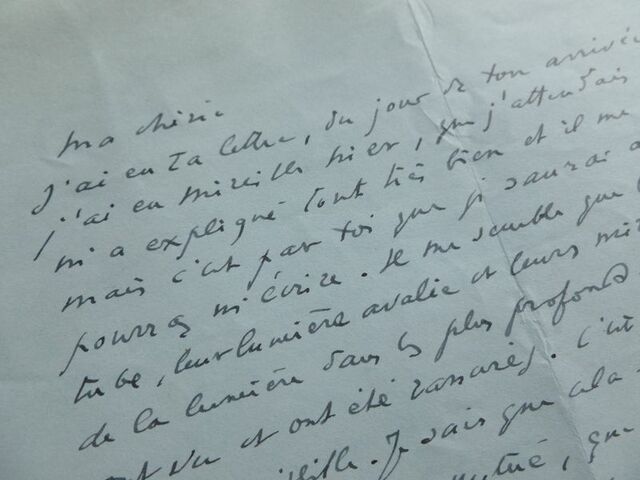 ma chérie
J'ai eu ta lettre, du jour de ton arrivée
j'ai eu mireille hier, que j'attendais
m'a expliqué tout très bien et il me
mais c'est par toi que je saurai
pourras m'écrire. Il me semble que
tube, leur lumière avalée et leurs
de la lumière dans les plus profonds
vu et ont été rassurés. C'est
Je sais que
que